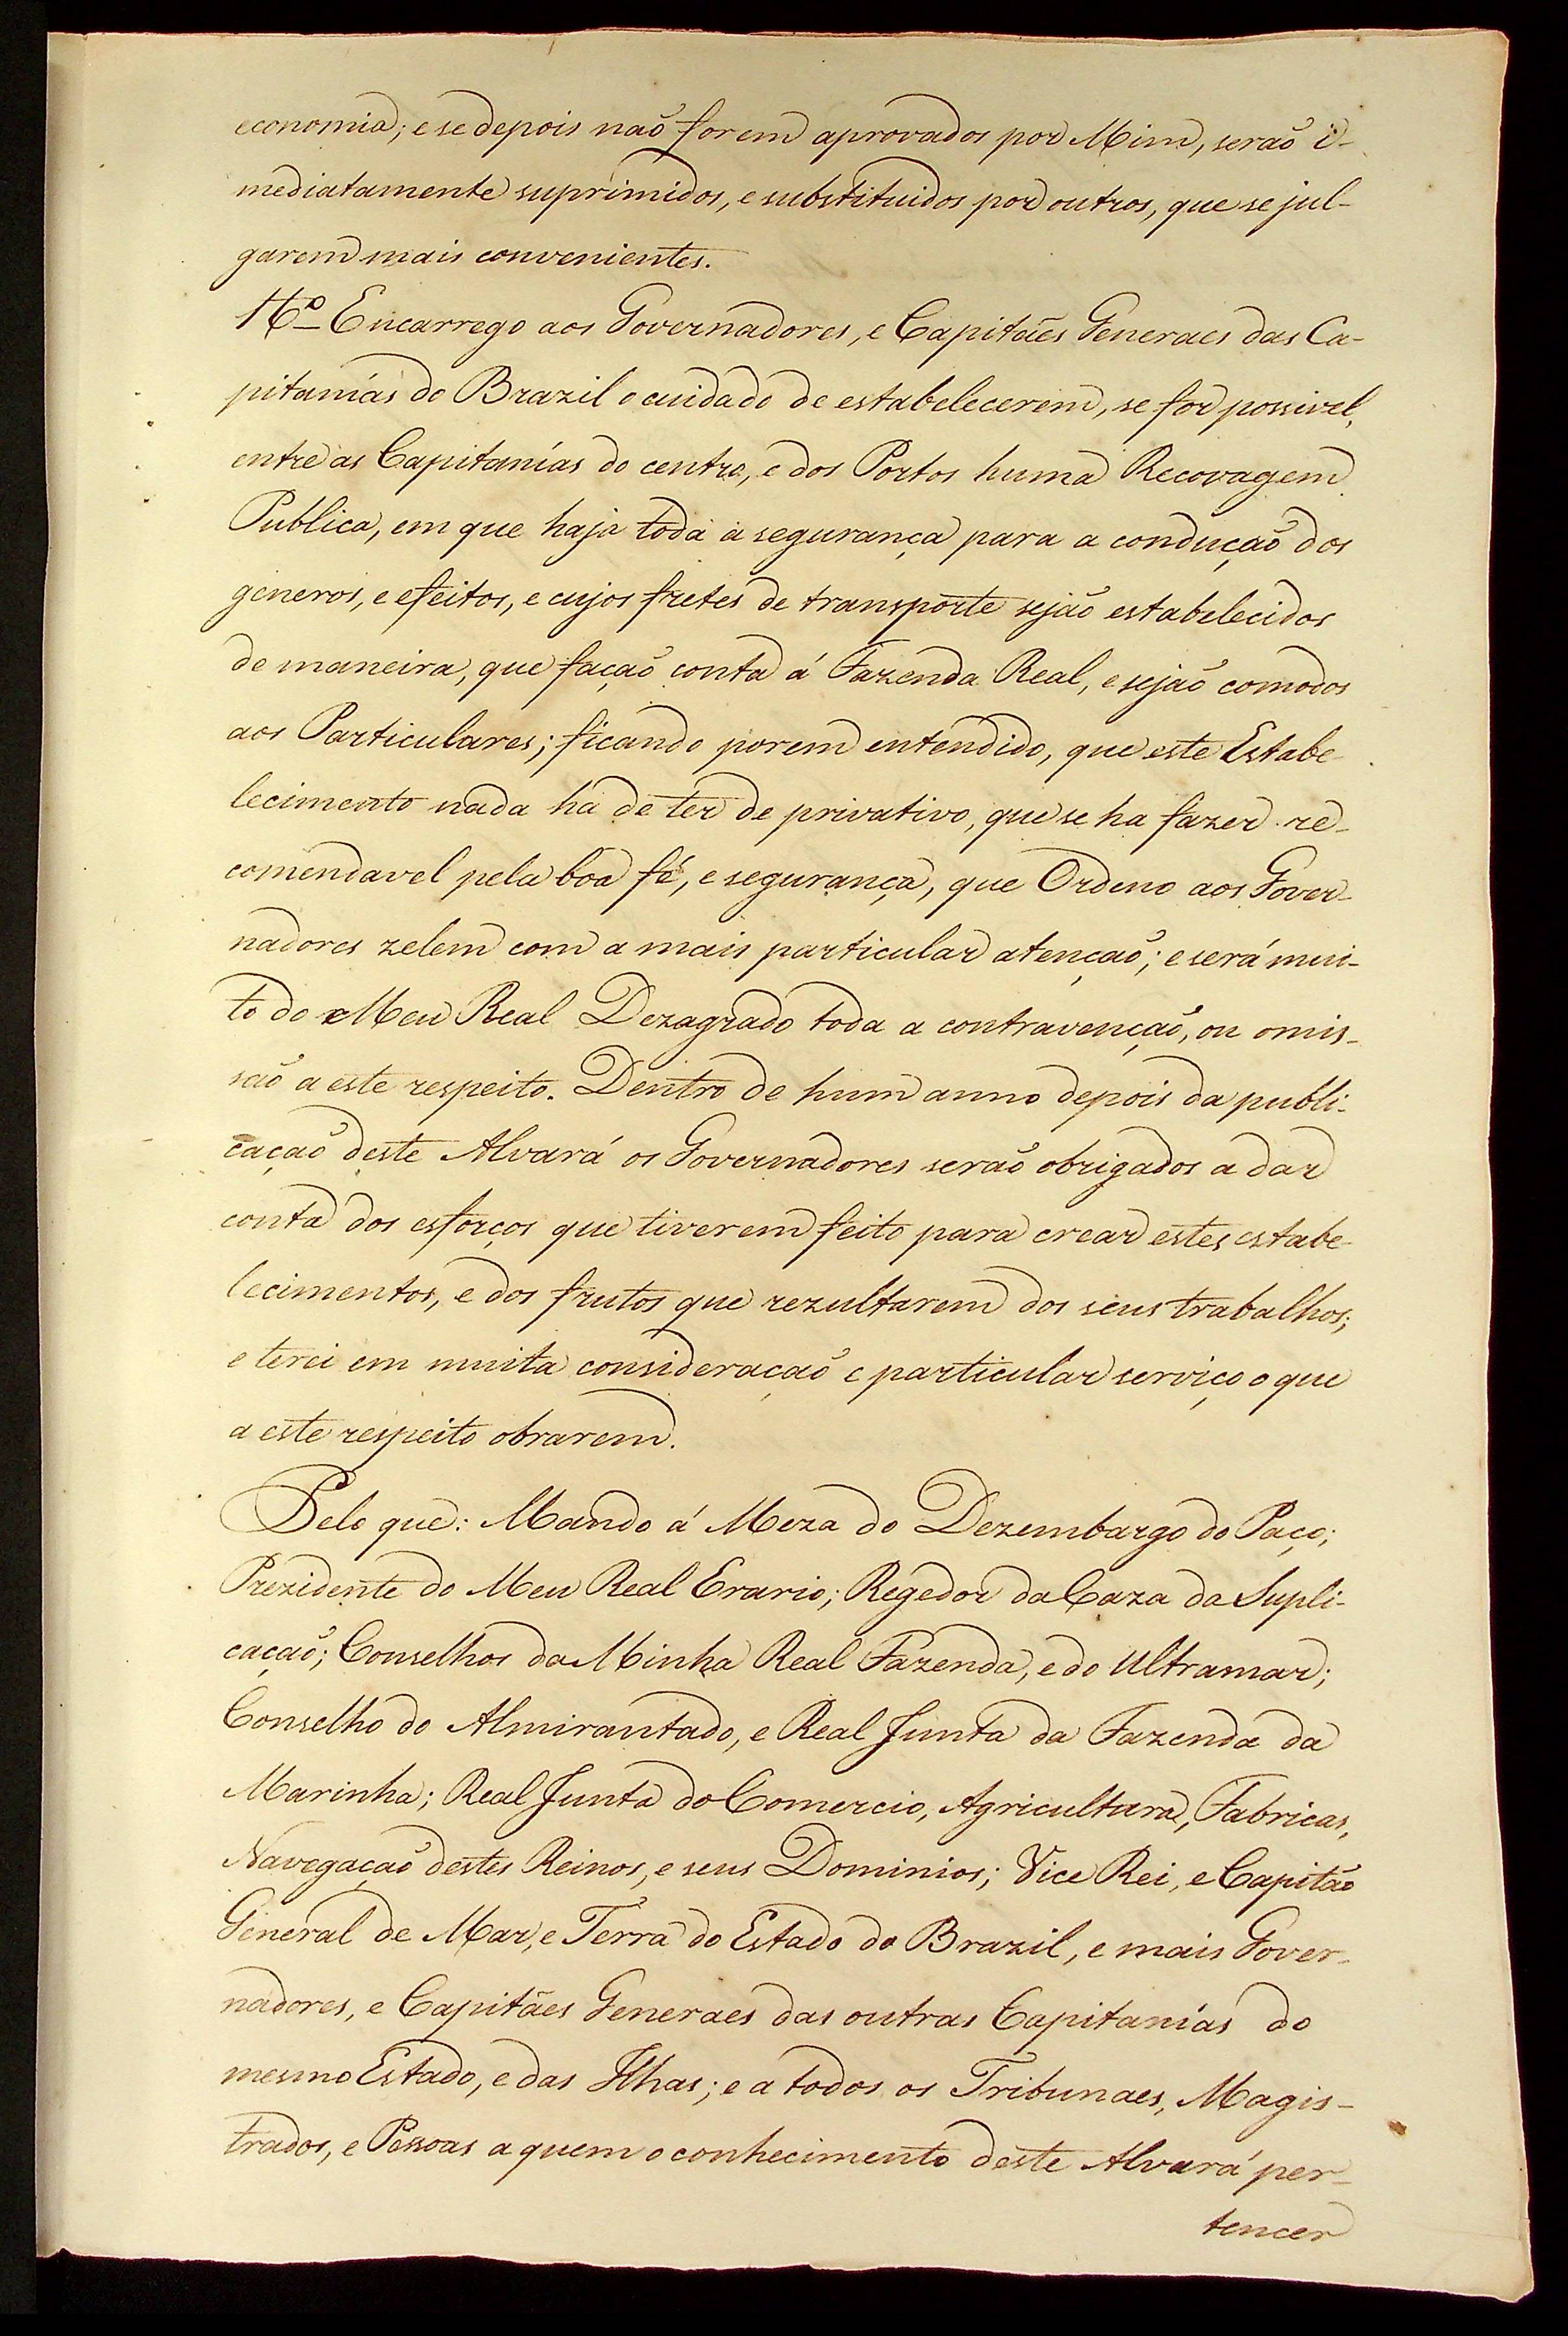 economia; e se depois naõ forem aprovados por Mim, seraõ i-
mediatamente suprimidos, e substituidos por outros, que se jul-
garem mais convenientes.
16º Encarrego aos Governadores, e Capitães Generaes das Ca-
pitanías do Brazil o cuidado de estabelecerem, se for possivel,
entre as Capitanías do centro, e dos Portos huma Recovagem
Publica, em que haja toda a segurança para a conduçaõ dos
generos, e efeitos, e cujos fretes de transporte sejaõ estabelecidos
de maneira, que façaõ conta á Fazenda Real, e sejaõ comodos
aos Particulares; ficando porem entendido, que este Estabe-
lecimento nada ha de ter de privativo, que se ha fazer re-
comendavel pela boa fé, e segurança, que Ordeno aos Gover-
nadores zelem com a mais particular atençaõ; e será mui-
to do Meu Real Dezagrado toda a contravençaõ, ou omis-
saõ a este respeito. Dentro de hum anno depois da publi-
caçaõ deste Alvará os Governadores seraõ obrigados a dar
conta dos esforços que tiverem feito para crear estes estabe-
lecimentos, e dos frutos que rezultarem dos seus trabalhos;
e terei em muita consideraçaõ e particular serviço o que
a este respeito obrarem.
Pelo que: Mando á Meza do Dezembargo do Paço;
Prezidente do Meu Real Erario; Regedor da Caza da Supli-
caçaõ; Conselhos da Minha Real Fazenda, e do Ultramar;
Conselho do Almirantado, e Real Junta da Fazenda da
Marinha; Real Junta do Comercio, Agricultura, Fabricas,
Navegaçaõ destes Reinos, e seus Dominios; Vice Rei, e Capitão
General de Mar, e Terra do Estado do Brazil, e mais Gover-
nadores, e Capitães Generaes das outras Capitanías do
mesmo Estado, e das Ilhas; e a todos os Tribunaes, Magis-
trados, e Pessoas a quem o conhecimento deste Alvará per-
tencer